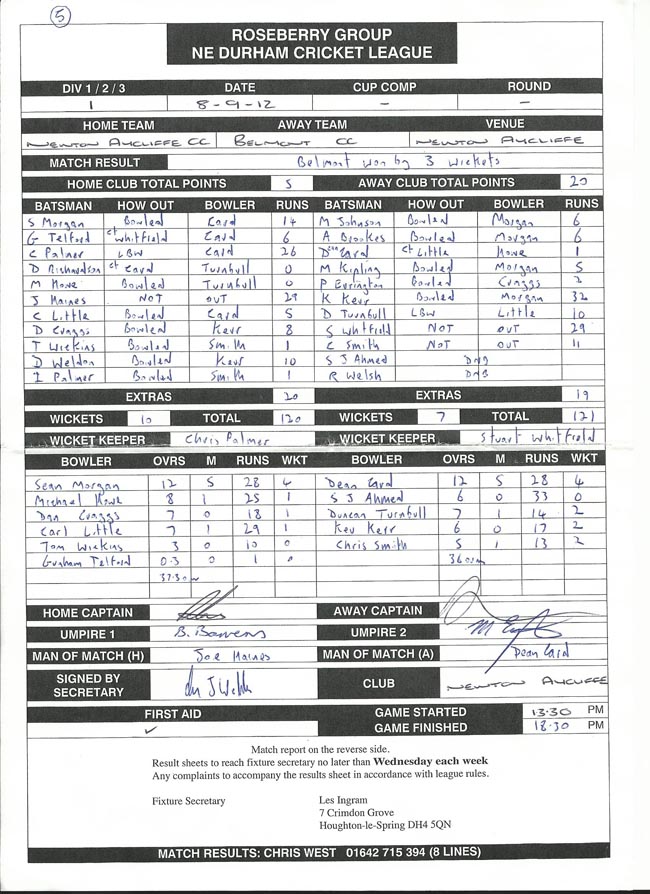 5
ROSEBERRY GROUP
NE DURHAM CRICKET LEAGUE
DIV 1 / 2 / 3 DATE CUP COMP ROUND
1 8-9-12 - -
HOME TEAM AWAY TEAM VENUE
NEWTON AYCLIFFE CC BELMONT CC NEWTON AYCLIFFE
MATCH RESULT Belmont won by 3 wickets
HOME CLUB TOTAL POINTS 5 AWAY CLUB TOTAL POINTS 20
BATSMAN HOW OUT BOWLER RUNS BATSMAN HOW OUT BOWLER RUNS
S Morgan Bowled Card 14 M Johnson Bowled Morgan 6
G Telford ct Whitfield Card 6 A Brookes Bowled Morgan 6
C Palmer LBW Card 26 Dean Card ct Little Howe 1
D Richardson ct Card Turnbull 0 M Kipling Bowled Morgan 5
M Howe Bowled Turnbull 0 P Errington Bowled Craggs 2
J Haines NOT OUT 29 K Kerr Bowled Morgan 32
C Little Bowled Card 5 D Turnbull LBW Little 10
D Craggs Bowled Kerr 8 S Whitfield NOT OUT 29
T Wickins Bowled Smith 1 C Smith NOT OUT 11
D Weldon Bowled Kerr 10 S J Ahmed DNB
I Palmer Bowled Smith 1 R Welsh DNB
EXTRAS 20 EXTRAS 19
WICKETS 10 TOTAL 120 WICKETS 7 TOTAL 121
WICKET KEEPER Chris Palmer WICKET KEEPER Stuart Whitfield
BOWLER OVRS M RUNS WKT BOWLER OVRS M RUNS WKT
Sean Morgan 12 5 28 4 Dean Card 12 5 28 4
Michael Howe 8 1 25 1 S J Ahmed 6 0 33 0
Dan Craggs 7 0 18 1 Duncan Turnbull 7 1 14 2
Carl Little 7 1 29 1 Kev Kerr 6 0 17 2
Tom Wickins 3 0 10 0 Chris Smith 5 1 13 2
Graham Telford 0.3 0 1 0 36
37.3
HOME CAPTAIN AWAY CAPTAIN
UMPIRE 1 B. Bowens UMPIRE 2
MAN OF MATCH (H) Joe Haines MAN OF MATCH (A) Dean Card
SIGNED BY SECRETARY CLUB NEWTON AYCLIFFE
FIRST AID GAME STARTED 13.30 PM
✓ GAME FINISHED 18.30 PM
Match report on the reverse side.
Result sheets to reach fixture secretary no later than Wednesday each week
Any complaints to accompany the results sheet in accordance with league rules.
Fixture Secretary Les Ingram
7 Crimdon Grove
Houghton-le-Spring DH4 5QN
MATCH RESULTS: CHRIS WEST 01642 715 394 (8 LINES)